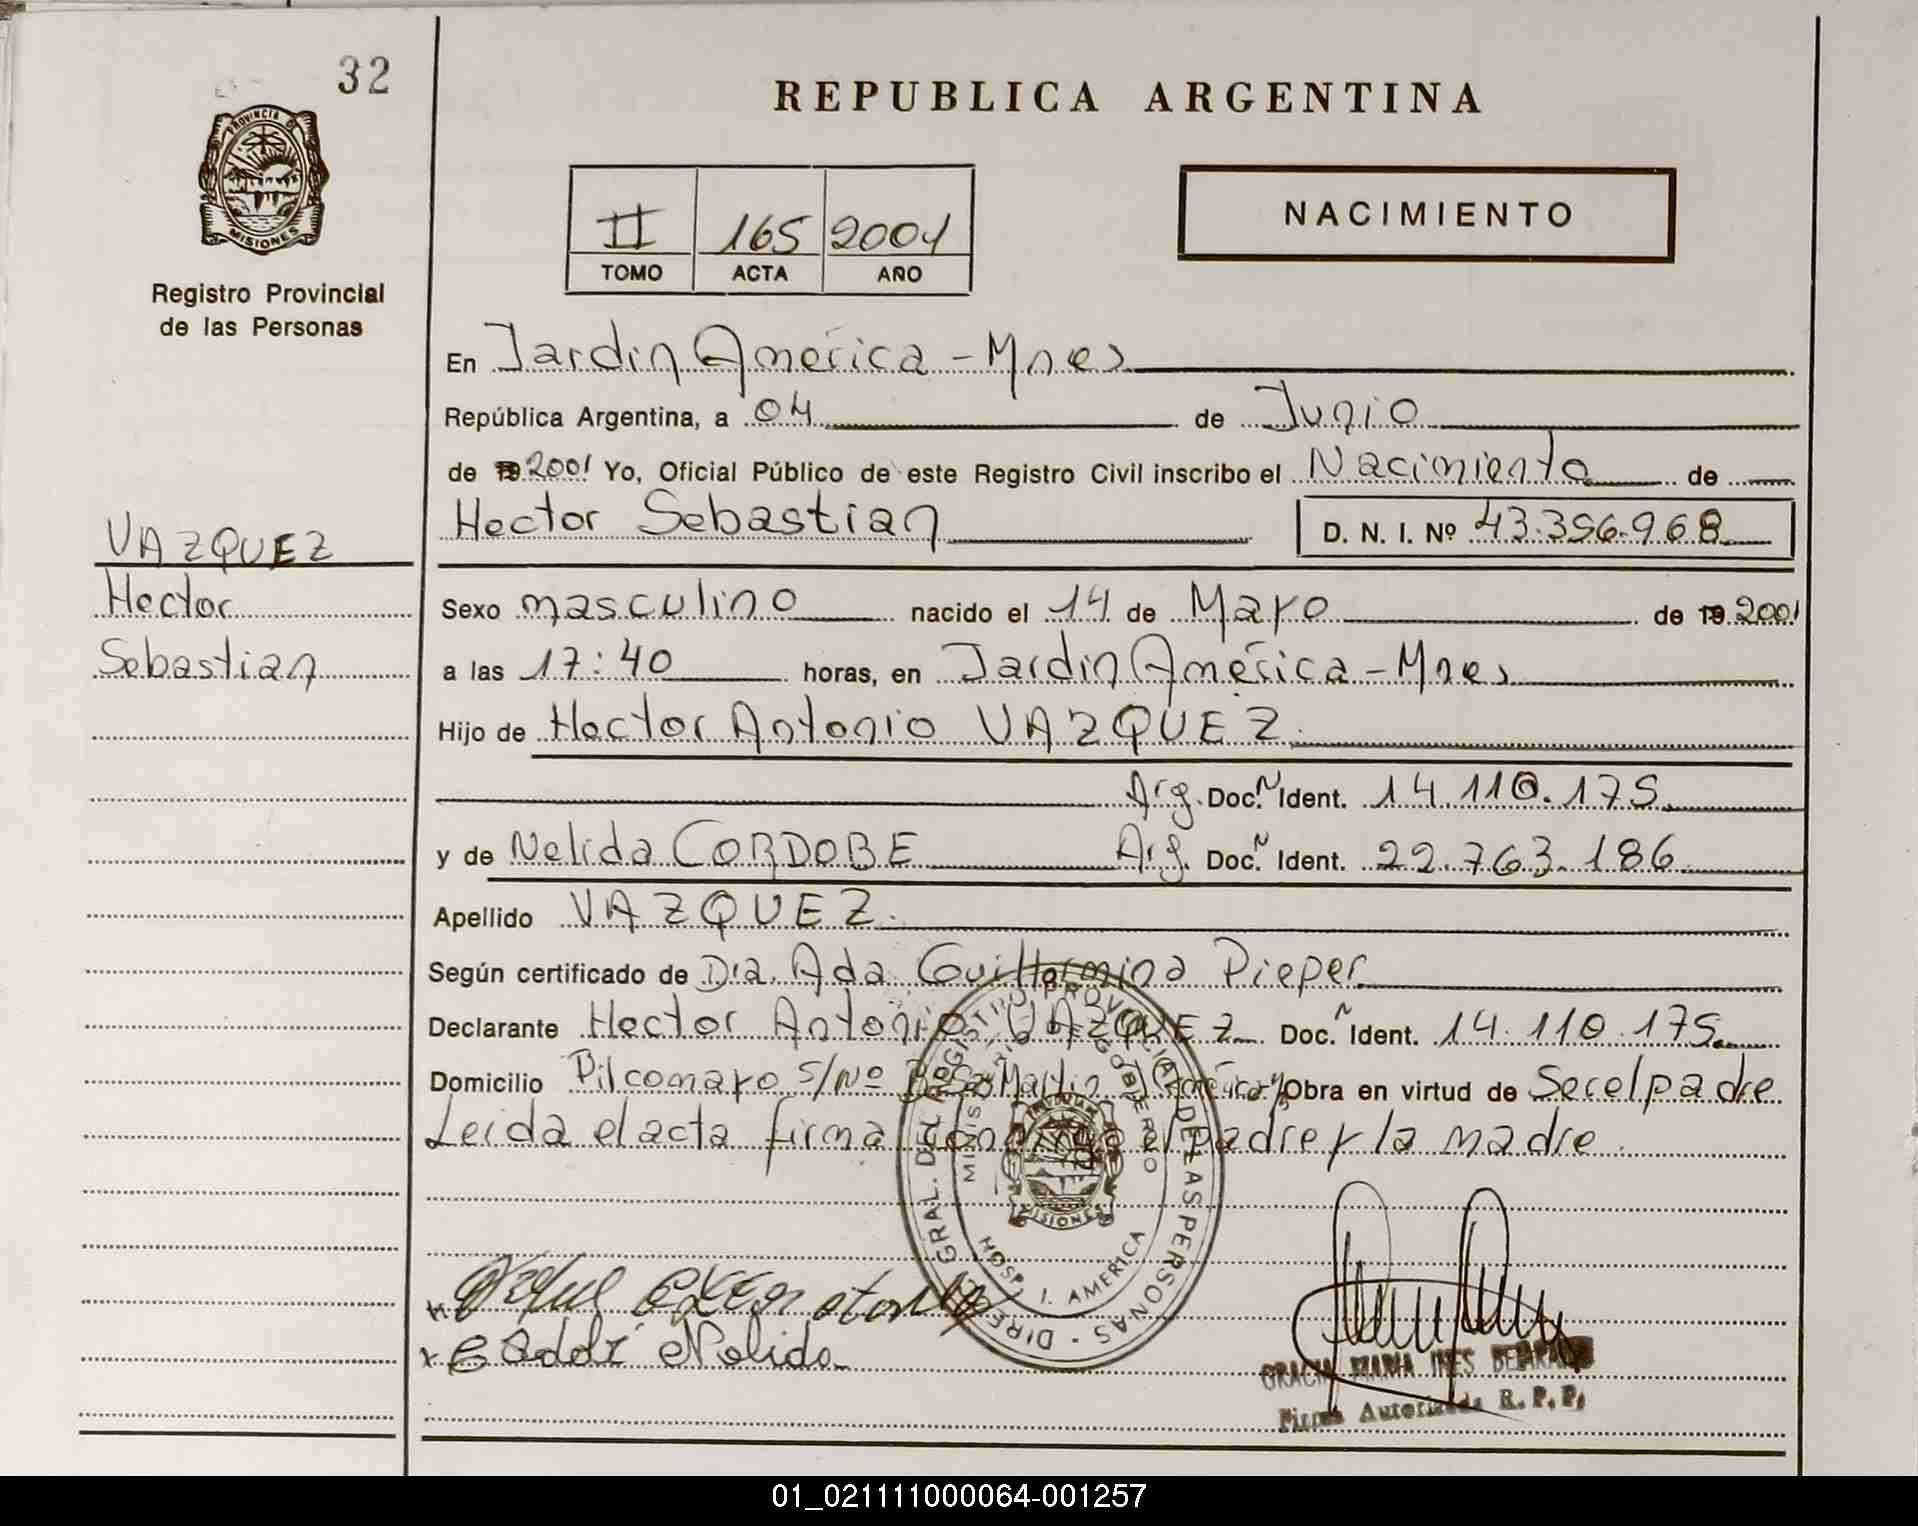 32
REPUBLICA ARGENTINA
PROVINCIA DE
MISIONES
Registro Provincial
de las Personas
II 165 2001
TOMO ACTA AÑO
NACIMIENTO
En Jardin América - Mnes
República Argentina, a 04 de Junio
de 19 2001 Yo, Oficial Público de este Registro Civil inscribo el Nacimiento de
Hector Sebastian D. N. I. Nº 43.356.968
VAZQUEZ
Hector
Sebastian
Sexo masculino nacido el 14 de Mayo de 19 2001
a las 17:40 horas, en Jardin América - Mnes
Hijo de Hector Antonio VAZQUEZ
Arg. Doc. Ident. 14.110.175
y de Nelida CORDOBE Arg. Doc. Ident. 22.763.186
Apellido VAZQUEZ
Según certificado de Dra. Ada Guillermina Pieper
Declarante Hector Antonio VAZQUEZ Doc. Ident. 14.110.175
Domicilio Pilcomayo s/Nº Bº San Martin J. América Obra en virtud de Ser el padre
Leida el acta firma conmigo el padre y la madre.
DIRE GRAL. DEL REGISTRO PROVINCIAL DE LAS PERSONAS
MINISTERIO DE GOBIERNO
MISIONES
HOSP. J. AMERICA
Nelida
GRACIA MARIA INES
Firma Autorizada R. P. P.
01_021111000064-001257